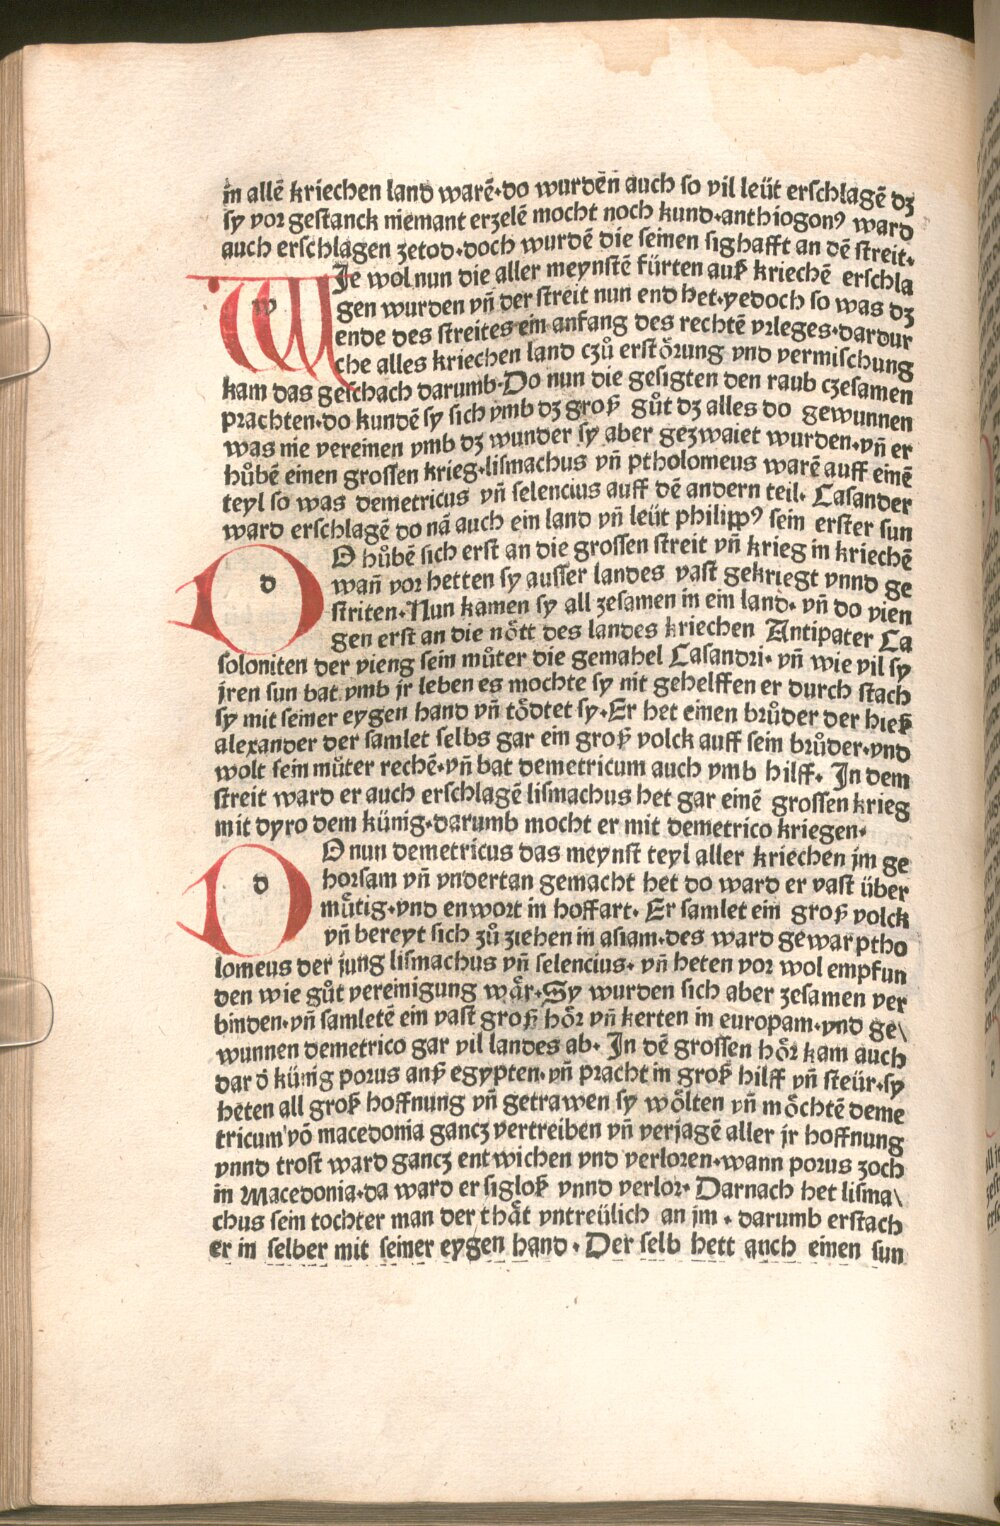 in allē kriechen land warē·do wurdēn auch so vil leüt erschlagē dz
sy vor gestanck niemant erzelē mocht noch kund·anthiogonꝰ ward
auch erschlagen zetod·doch wurdē die seinen sighafft an dē streit·
WJe wol nun die aller meynstē fürten auß kriechē erschla
gen wurden vn̄ der streit nun end het·yedoch so was dz
ende des streites ein anfang des rechtē vrleges·dardur
che alles kriechen land czů erstörung vnd vermischung
kam das geschach darumb·Do nun die gesigten den raub czesamen
prachten·do kundē sy sich vmb dz groß gůt dz alles do gewunnen
was nie vereinen vmb dz wunder sy aber gezwaiet wurden·vn̄ er
hůbē einen grossen krieg·lismachus vn̄ ptholomeus warē auff einē
teyl so was demetricus vn̄ selencius auff dē andern teil· Casander
ward erschlagē do nā auch ein land vn̄ leüt philippꝰ sein erster sun
DO hůbē sich erst an die grossen streit vn̄ krieg in kriechē
wan̄ vor hetten sy ausser landes vast gekriegt vnnd ge
striten·Nun kamen sy all zesamen in ein land· vn̄ do vien
gen erst an die nött des landes kriechen Antipater Ca
soloniten der vieng sein můter die gemahel Casandri· vn̄ wie vil sy
jren sun bat vmb jr leben es mochte sy nit gehelffen er durch stach
sy mit seiner eygen hand vn̄ tödtet sy·Er het einen brůder der hieß
alexander der samlet selbs gar ein groß volck auff sein brůder·vnd
wolt sein můter rechē·vn̄ bat demetricum auch vmb hilff· Jn dem
streit ward er auch erschlagē lismachus het gar einē grossen krieg
mit dyro dem künig·darumb mocht er mit demetrico kriegen·
DO nun demetricus das meynst teyl aller kriechen jm ge
horsam vn̄ vndertan gemacht het do ward er vast über
mütig·vnd enwort in hoffart· Er samlet ein groß volck
vn̄ bereyt sich zů ziehen in asiam·des ward gewar ptho
lomeus der jung lismachus vn̄ selencius· vn̄ heten vor wol empfun
den wie gůt vereinigung wär·Sy wurden sich aber zesamen ver
binden·vn̄ samletē ein vast groß hör vn̄ kerten in europam·vnd ge\
wunnen demetrico gar vil landes ab· Jn dē grossen hör kam auch
dar d̄ künig porus anß egypten·vn̄ pracht in groß hilff vn̄ steür·sy
heten all groß hoffnung vn̄ getrawen sy wölten vn̄ möchtē deme
tricum vō macedonia gancz vertreiben vn̄ verjagē aller jr hoffnung
vnnd trost ward gancz entwichen vnd verloren·wann porus zoch
in Macedonia·da ward er sigloß vnnd verlor· Darnach het lisma\
chus sein tochter man der thät vntreülich an jm · darumb erstach
er in selber mit seiner eygen hand · Der selb hett auch einen sun